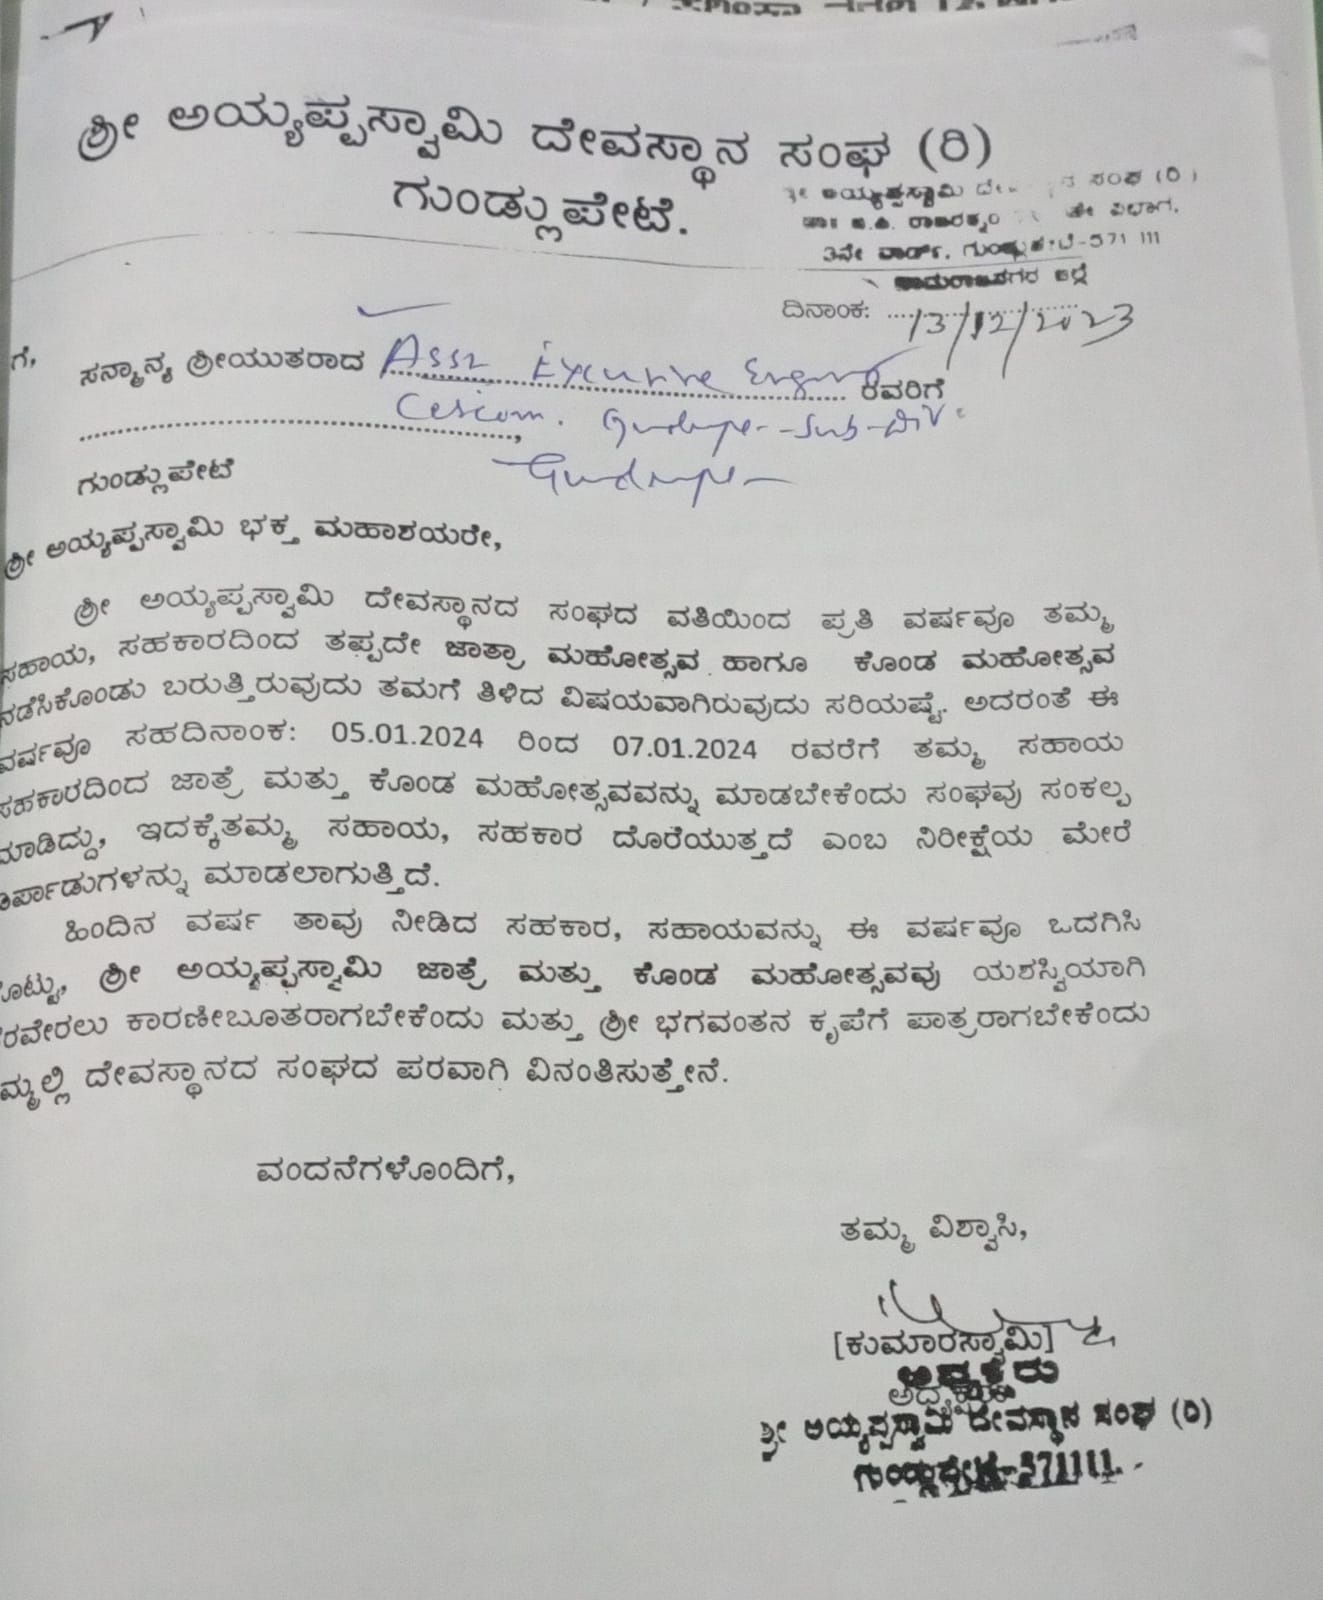 ಶ್ರೀ ಅಯ್ಯಪ್ಪಸ್ವಾಮಿ ದೇವಸ್ಥಾನ ಸಂಘ (ರಿ)
ಗುಂಡ್ಲುಪೇಟೆ.
ಅಯ್ಯಪ್ಪಸ್ವಾಮಿ ಸಂಘ (ರಿ)
ವಿಭಾಗ,
3ನೇ ವಾರ್ಡ್, ಗುಂಡ್ಲುಪೇಟೆ-571 111
ಚಾಮರಾಜನಗರ ಜಿಲ್ಲೆ
ದಿನಾಂಕ: 13/12/2023
ಗೆ,
ಸನ್ಮಾನ್ಯ ಶ್ರೀಯುತರಾದ Asst Executive Engineer ರವರಿಗೆ
Cescom. Sub-Div.
ಗುಂಡ್ಲುಪೇಟೆ
ಶ್ರೀ ಅಯ್ಯಪ್ಪಸ್ವಾಮಿ ಭಕ್ತ ಮಹಾಶಯರೇ,
ಶ್ರೀ ಅಯ್ಯಪ್ಪಸ್ವಾಮಿ ದೇವಸ್ಥಾನದ ಸಂಘದ ವತಿಯಿಂದ ಪ್ರತಿ ವರ್ಷವೂ ತಮ್ಮ
ಸಹಾಯ, ಸಹಕಾರದಿಂದ ತಪ್ಪದೇ ಜಾತ್ರಾ ಮಹೋತ್ಸವ ಹಾಗೂ ಕೊಂಡ ಮಹೋತ್ಸವ
ನಡೆಸಿಕೊಂಡು ಬರುತ್ತಿರುವುದು ತಮಗೆ ತಿಳಿದ ವಿಷಯವಾಗಿರುವುದು ಸರಿಯಷ್ಟೆ. ಅದರಂತೆ ಈ
ವರ್ಷವೂ ಸಹದಿನಾಂಕ: 05.01.2024 ರಿಂದ 07.01.2024 ರವರೆಗೆ ತಮ್ಮ ಸಹಾಯ
ಸಹಕಾರದಿಂದ ಜಾತ್ರೆ ಮತ್ತು ಕೊಂಡ ಮಹೋತ್ಸವವನ್ನು ಮಾಡಬೇಕೆಂದು ಸಂಘವು ಸಂಕಲ್ಪ
ಮಾಡಿದ್ದು, ಇದಕ್ಕೆತಮ್ಮ ಸಹಾಯ, ಸಹಕಾರ ದೊರೆಯುತ್ತದೆ ಎಂಬ ನಿರೀಕ್ಷೆಯ ಮೇರೆ
ರ್ಪಾಡುಗಳನ್ನು ಮಾಡಲಾಗುತ್ತಿದೆ.
ಹಿಂದಿನ ವರ್ಷ ತಾವು ನೀಡಿದ ಸಹಕಾರ, ಸಹಾಯವನ್ನು ಈ ವರ್ಷವೂ ಒದಗಿಸಿ
ೊಟ್ಟು, ಶ್ರೀ ಅಯ್ಯಪ್ಪಸ್ವಾಮಿ ಜಾತ್ರೆ ಮತ್ತು ಕೊಂಡ ಮಹೋತ್ಸವವು ಯಶಸ್ವಿಯಾಗಿ
ೆರವೇರಲು ಕಾರಣೀಬೂತರಾಗಬೇಕೆಂದು ಮತ್ತು ಶ್ರೀ ಭಗವಂತನ ಕೃಪೆಗೆ ಪಾತ್ರರಾಗಬೇಕೆಂದು
ಮ್ಮಲ್ಲಿ ದೇವಸ್ಥಾನದ ಸಂಘದ ಪರವಾಗಿ ವಿನಂತಿಸುತ್ತೇನೆ.
ವಂದನೆಗಳೊಂದಿಗೆ,
ತಮ್ಮ ವಿಶ್ವಾಸಿ,
[ಕುಮಾರಸ್ವಾಮಿ]
ಅಧ್ಯಕ್ಷರು
ಶ್ರೀ ಅಯ್ಯಪ್ಪಸ್ವಾಮಿ ದೇವಸ್ಥಾನ ಸಂಘ (ರಿ)
ಗುಂಡ್ಲುಪೇಟೆ-571111.